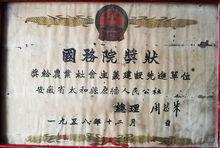 國務院獎狀
獎給農業社會主義建設先進單位
安徽省太和縣原墙人民公社
總理 周恩來
一九五八年十二月 日